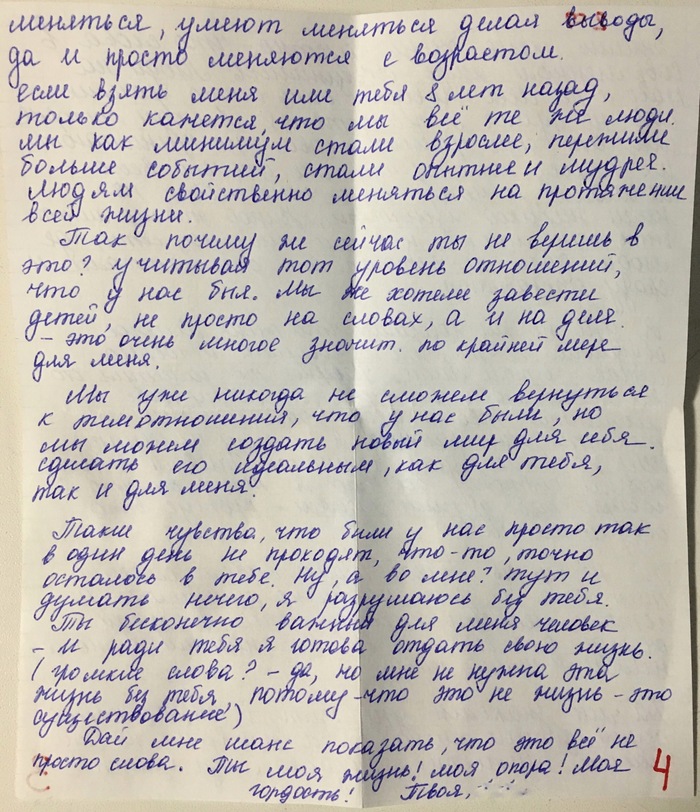 меняться, умеют меняться делая выводы,
да и просто меняются с возрастом.
если взять меня или тебя 8 лет назад,
только кажется, что мы всё те же люди.
мы как минимум стали взрослее, пережили
больше событий, стали опытнее и мудрее.
людям свойственно меняться на протяжении
всей жизни.
Так почему же сейчас ты не веришь в
это? учитывая тот уровень отношений,
что у нас был. Мы же хотели завести
детей, не просто на словах, а и на деле.
- это очень многое значит. по крайней мере
для меня.
Мы уже никогда не сможем вернуться
к тем отношениям, что у нас были, но
мы можем создать новый мир для себя.
сделать его идеальным, как для тебя,
так и для меня.
Такие чувства, что были у нас просто так
в один день не проходят, что-то, точно
осталось в тебе. Ну, а во мне? тут и
думать нечего, я разрушаюсь без тебя.
Ты бесконечно важный для меня человек
- и ради тебя я готова отдать свою жизнь.
(громкие слова? - да, но мне не нужна эта
жизнь без тебя, потому-что это не жизнь - это
существование)
Дай мне шанс показать, что это всё не
просто слова. Ты моя жизнь! моя опора! Моя
гордость! Твоя,
4